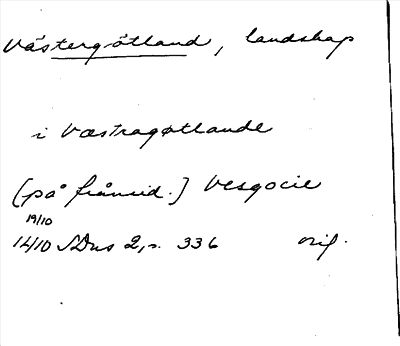 Västergötland, landskap
i Væstragøtlande
[på frånsid.] Vesgocie
19/10
1410 SDns 2, s. 336 orig.